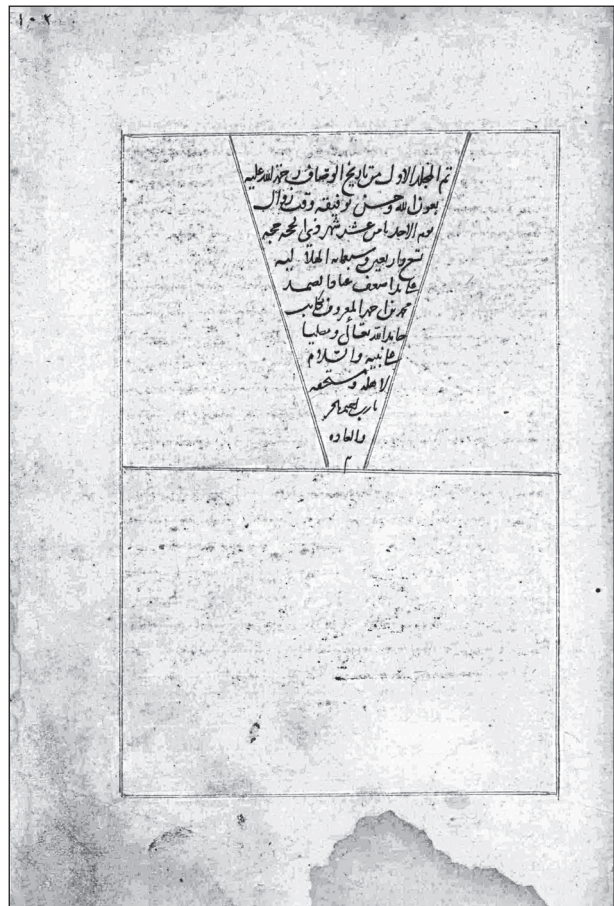 ١٠٢
تم المجلد الاول من تاريخ الوصاف رحمة الله عليه
بعون الله وحسن توفيقه وقت زوال
يوم الاحد ثامن عشر شهر ذى الحجه حجه
تسع واربعين وسبعمايه الهلاليه
اضعف عباد الصمد
محمد بن احمد المعروف بكاتب
حامدا لله تعالى ومصليا
على نبيه والسلام
لاهله ومستحقه
يارب اختم بالخير
والسعاده
م